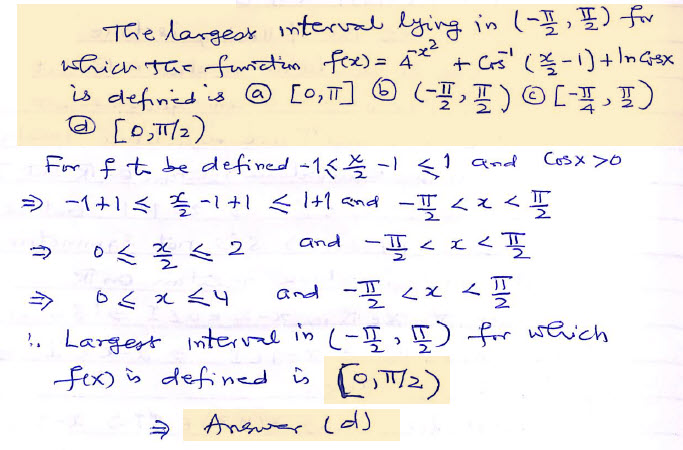 The largest interval lying in (-π/2, π/2) for
which the function f(x) = 4^-x² + Cos⁻¹(x/2 - 1) + ln Cosx
is defined is ⓐ [0, π] ⓑ (-π/2, π/2) ⓒ [-π/4, π/2)
ⓓ [0, π/2)
For f to be defined -1 ≤ x/2 - 1 ≤ 1 and Cosx > 0
⇒ -1+1 ≤ x/2 - 1 + 1 ≤ 1+1 and -π/2 < x < π/2
⇒ 0 ≤ x/2 ≤ 2 and -π/2 < x < π/2
⇒ 0 ≤ x ≤ 4 and -π/2 < x < π/2
∴ Largest interval in (-π/2, π/2) for which
f(x) is defined is [0, π/2)
⇒ Answer (d)